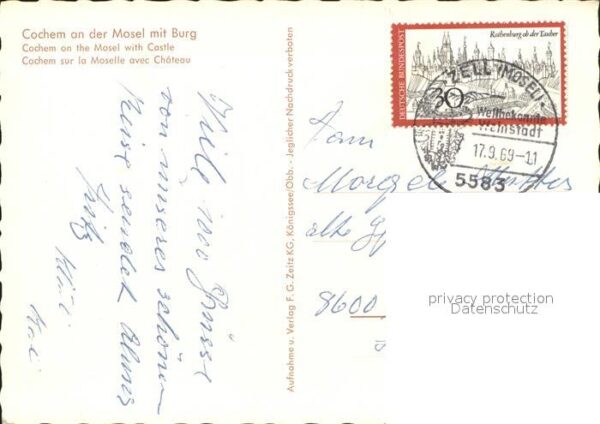 Cochem an der Mosel mit Burg
Cochem on the Mosel with Castle
Cochem sur la Moselle avec Château
Viele 1000 Grüsse
von unserer schönen
Reise sendet
Fritz
Aufnahme u. Verlag F. G. Zeitz KG, Königssee/Obb. - Jeglicher Nachdruck verboten
DEUTSCHE BUNDESPOST
Rothenburg ob der Tauber
30
ZELL (MOSEL)
Weltbekannte
Weinstadt
17.9.69-11
5583
8600
privacy protection
Datenschutz